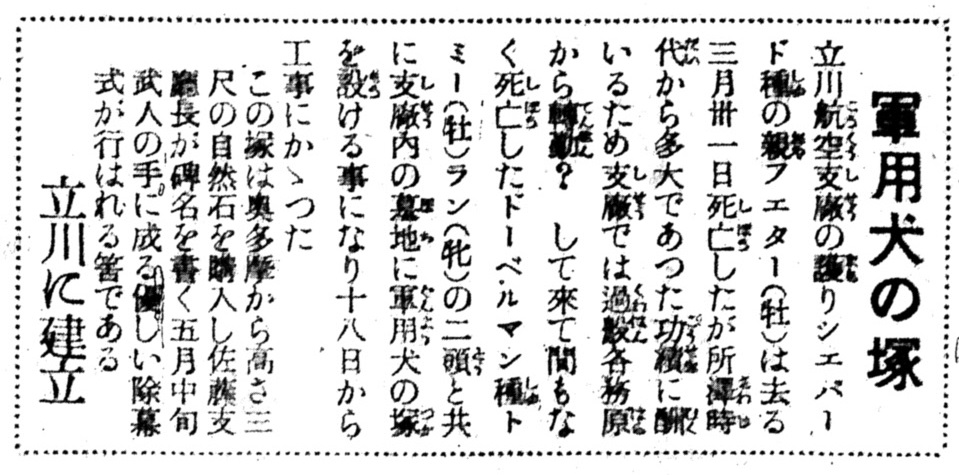 軍用犬の塚
立川航空支廠の護りシエパー
ド種の親フエター(牡)は去る
三月卅一日死亡したが所澤時
代から多大であつた功績に酬
いるため支廠では過般各務原
から轉勤? して来て間もな
く死亡したドーベルマン種ト
ミー(牡)ラン(牝)の二頭と共
に支廠内の墓地に軍用犬の塚
を設ける事になり十八日から
工事にかゝつた
この塚は奥多摩から高さ三
尺の自然石を購入し佐藤支
廳長が碑名を書く五月中旬
武人の手に成る優しい除幕
式が行はれる筈である
立川に建立